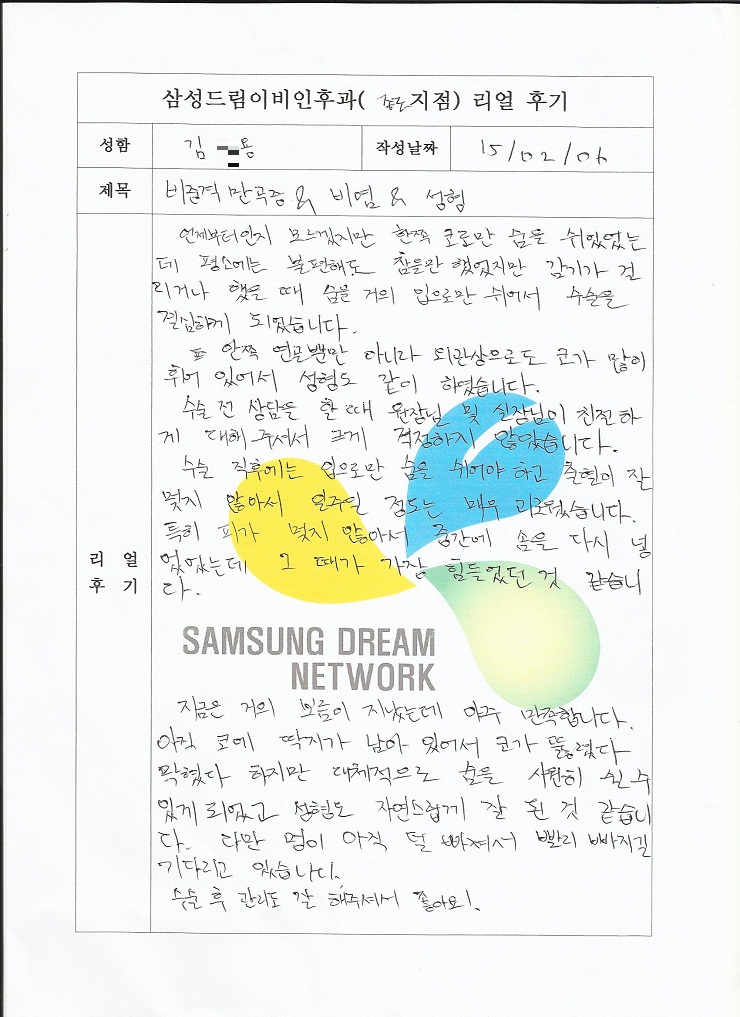 삼성드림이비인후과( 지점) 리얼 후기
성함 김 용 작성날짜 15/02/06
제목 비중격 만곡증 & 비염 & 성형
언제부터인지 모르겠지만 한쪽 코로만 숨을 쉬었었는
데 평소에는 불편해도 참을만 했었지만 감기가 걸
리거나 했을 때 숨을 거의 입으로만 쉬어서 수술을
결심하게 되었습니다.
안쪽 연골뿐만 아니라 외관상으로도 코가 많이
휘어 있어서 성형도 같이 하였습니다.
수술 전 상담을 할 때 원장님 및 실장님이 친절하
게 대해 주셔서 크게 걱정하지 않았습니다.
수술 직후에는 입으로만 숨을 쉬어야 하고 출혈이 잘
멎지 않아서 일주일 정도는 매우 괴로웠습니다.
특히 피가 멎지 않아서 중간에 솜을 다시 넣
었었는데 그 때가 가장 힘들었던 것 같습니
다.
리 얼
후 기
SAMSUNG DREAM
NETWORK
지금은 거의 보름이 지났는데 아주 만족합니다.
아직 코에 딱지가 남아 있어서 코가 뚫렸다
막혔다 하지만 대체적으로 숨을 시원히 쉴 수
있게 되었고 성형도 자연스럽게 잘 된 것 같습니
다. 다만 멍이 아직 덜 빠져서 빨리 빠지길
기다리고 있습니다.
수술 후 관리도 잘 해주셔서 좋아요!.